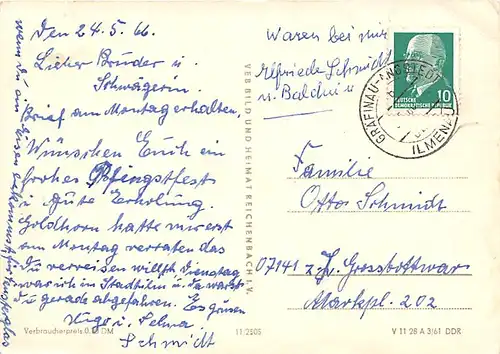 Den 24.5.66.
Lieber Bruder u.
Schwägerin.
Brief am Montag erhalten.
Wünschen Euch ein
frohes Pfingstfest
u. gute Erholung.
Goldhorn hatte mir erst
am Montag verraten das
du verreisen willst, Dienstag
war ich in Stadtilm u. da warst
du gerade abgefahren. Es grüsen
Hugo u. Selma
Schmidt
wenn du am
Waren bei mir
Elfriede Schmidt
u.
VEB BILD UND HEIMAT REICHENBACH I. V.
DEUTSCHE
DEMOKRATISCHE REPUBLIK
10
GRÄFINAU-ANGSTEDT
ILMENAU
Familie
Otto Schmidt
07141 z. Zt. Grossbottwar
Marktpl. 202
Verbraucherpreis 0, DM
11/2505
V 11 28 A 3/61 DDR